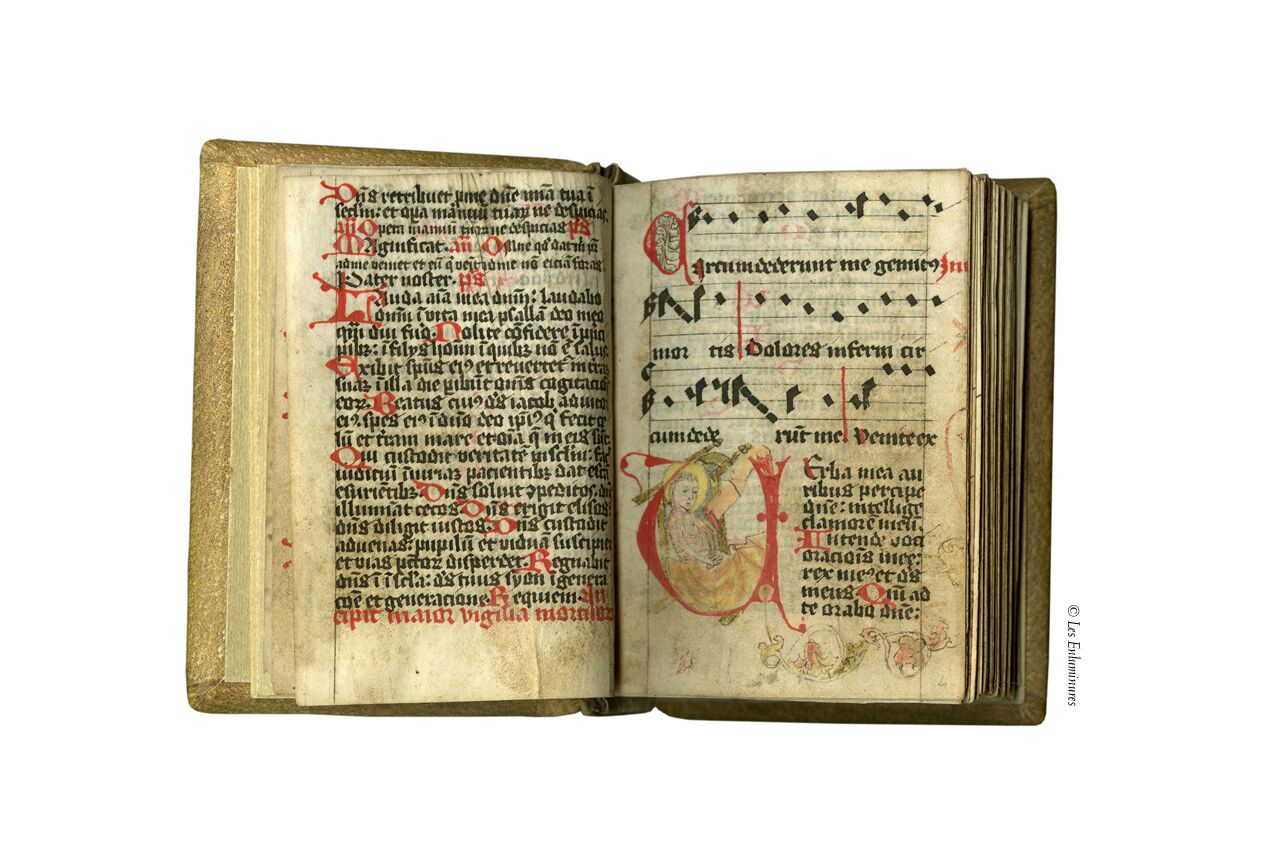 Dn̄s retribuet ꝓ me dn̄e mīa tua ī
sc̄lm: et oꝑa manuū tuaꝝ ne despicias
an̄ Opera manuum tuarum ne despicias p̄s
Magnificat. an̄ Om̄e qd̄ dat m̄ pr̄
ad me veniet et eū q̄ venit ad me non eiciam foras
Pater noster. p̄s
Lauda aīa mea dn̄m: laudabo
dn̄m ī vita mea psallā deo meo
qm̄ diu fuō. Nolite cōfidere ī prīci
pibꝫ: ī filijs hoīm ī quibꝫ nō ē salus.
Exibit sp̄us eiꝰ et reuertet in trā
suaꝫ ī illa die pibūt om̄s cogitacio
eoꝝ. Beatus cuiꝰ ds̄ iacob adiutor
eiꝰ. spes eiꝰ ī dn̄o deo ip̄iꝰ. q̄ fecit ce
lū et trām mare et oīa q̄ in eis sūt
Qui custodit veritatē in sc̄lm: fac
iudiciū īiuriaꝫ pacientibꝫ dat escā
esurientibꝫ Dn̄s soluit ꝯpeditos. dn̄s
illuminat cecos. Dn̄s erigit elisos.
dn̄s diligit iustos. Dn̄s custodit
aduenas: pupillū et viduā suscipiet
et vias pctor̄ disperdet. Regnabit
dn̄s ī sc̄la: ds̄ tuus syon ī genera
coē et generacionē. Requiem. In
cipit maior vigilia mortuor
Circumdederunt me gemitꝰ
mor tis Dolores inferni cir
cumdede rūt me Venite ex
Uerba mea au
ribus percipe
dn̄e: intellige
clamorē meū.
Intende voci
oracionis mee:
rex meꝰ et ds̄
meus. Qm̄ ad
te orabo dn̄e:
4
© Les Enluminures